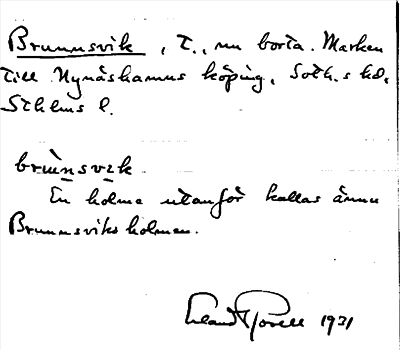 Brunnsvik, T., nu borta. Marken
till Nynäshamns köping, Soth.s hd,
Sthlms l.
brùnsvɪk
En holme utanför kallas ännu
Brunnsviksholmen.
1931